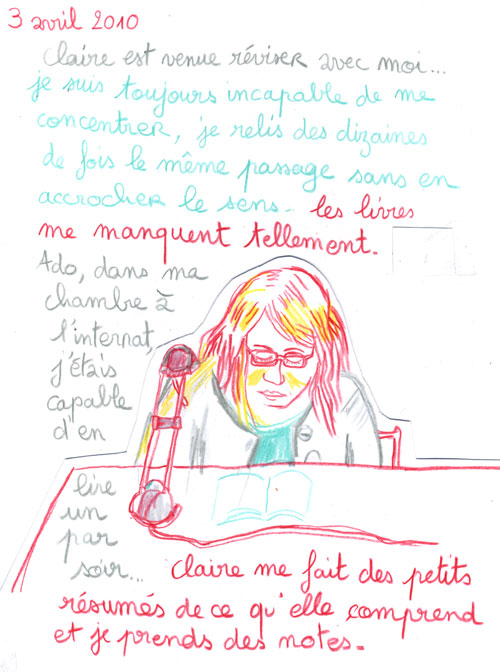 3 avril 2010
Claire est venue réviser avec moi...
je suis toujours incapable de me
concentrer, je relis des dizaines
de fois le même passage sans en
accrocher le sens. les livres
me manquent tellement.
Ado, dans ma
chambre à
l'internat,
j'étais
capable
d'en
lire
un
par
soir...
Claire me fait des petits
résumés de ce qu'elle comprend
et je prends des notes.